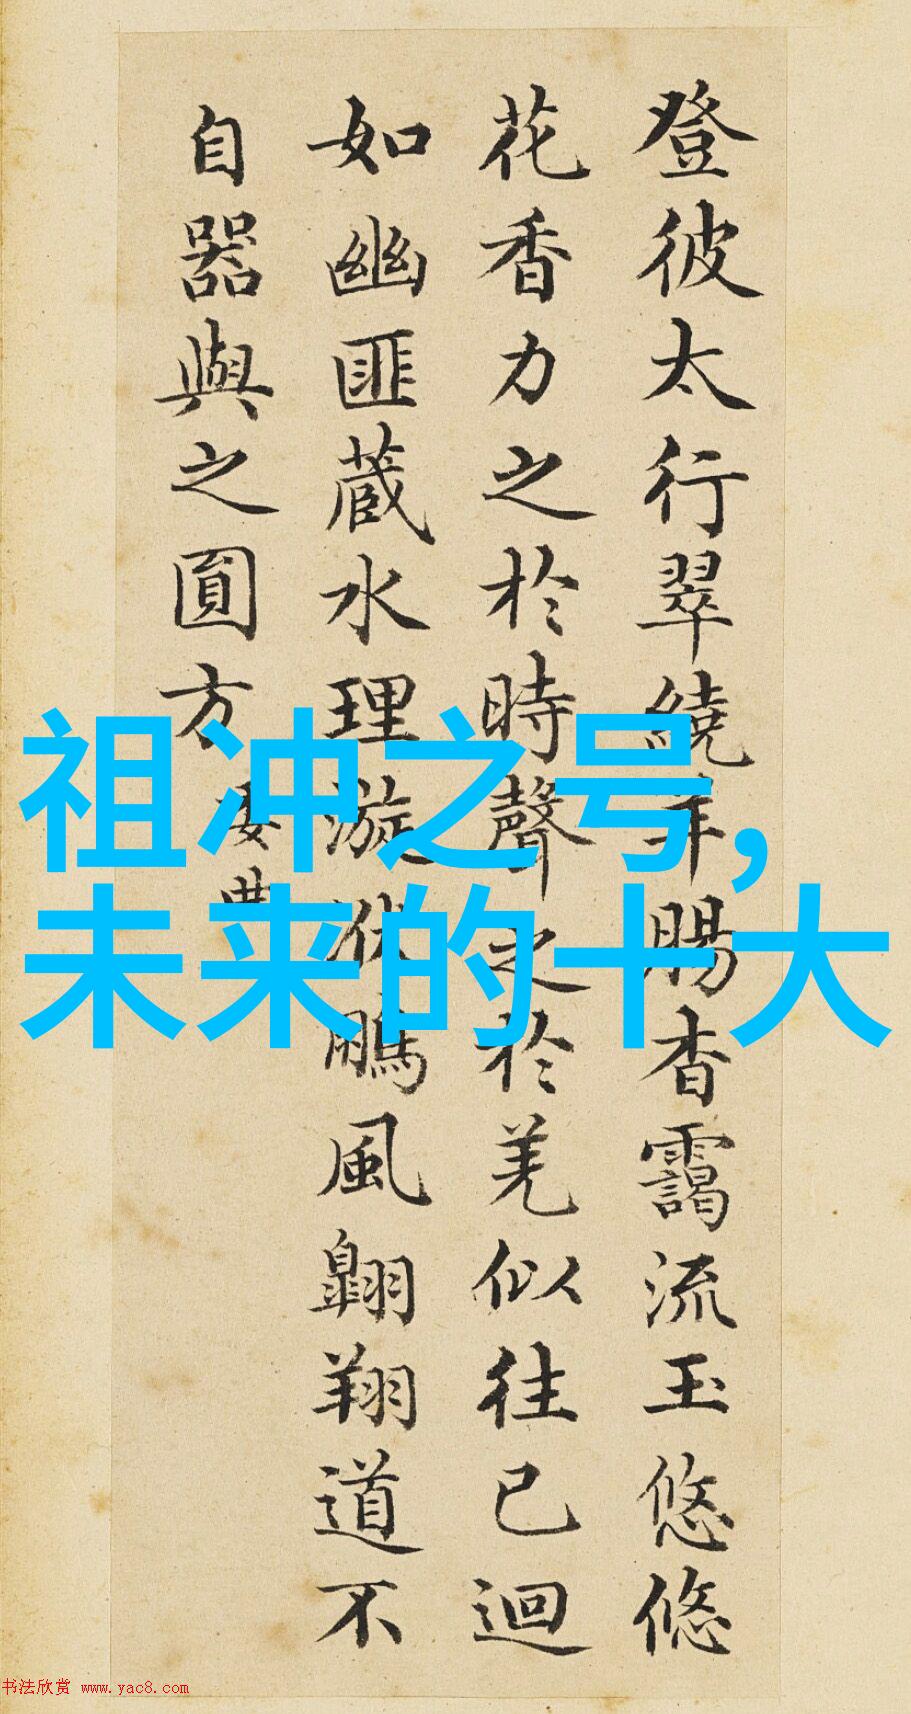 登彼太行翠繞羊腸杳靄流玉悠悠
花香力之於時聲之於羌似往已迴
如幽匪蔵水理漩洑鵬風翺翔道不
自器與之圓方
委曲
祖冲之号,
未来的十大
书法欣赏 www.yac8.com